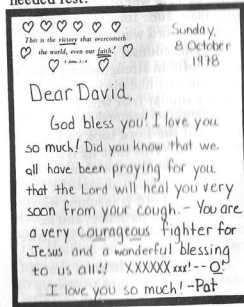 needed rest.
♡ ♡ ♡ ♡ ♡ ♡
This is the victory that overcometh
♡ the world, even our faith! ♡
♡ I John. 5:4 ♡
Sunday,
8 October
1978
Dear David,
God bless you! I love you
so much! Did you know that we
all have been praying for you
that the Lord will heal you very
soon from your cough. - You are
a very courageous fighter for
Jesus and a wonderful blessing
to us all!! XXXXXX xxx! -- O!
I love you so much! -Pat